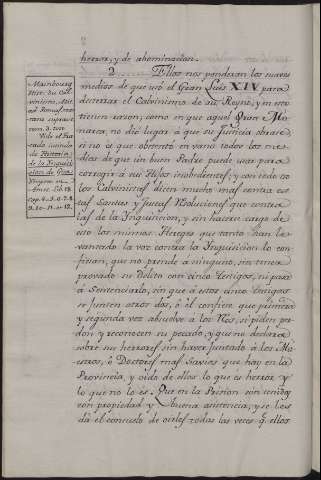 2
herror, y de abominacion.
2 Ellos nos ponderan los suaves
medios de que usó el Gran Luis XIV para
desterrar el Calvinismo de su Reyno, y en esto
tienen razon; como en que aquel Gran Mo-
narca, no dió lugar à que su Justicia obrase,
si no es que obstento en vano todos los me-
dios de que un buen Padre puede usar para
corregir à sus Hijos inobedientes; y con todo eso
los Calvinistas dicen mucho mas contra es-
tas Santas y Justas Resoluciones que contra
las de la Inquisicion, y sin hacerse cargo de
esto los mismos Hereges que tanto han le-
vantado la voz contra la Inquisicion con-
fiesan, que no prende à ninguno, sin tener
provado su Delito con cinco Testigos, ni pasa
à Sentenciarlo, sin que à estos cinco Testigos
se junten otros dos, ó él confiese que primera
y segunda vez absuelve à los Reos, si piden per-
don y reconocen su pecado, y que no declara
sobre sus herrores sin haver juntado à los Ma-
estros, ó Doctores mas Savios que hay en la
Provincia, y oido de ellos lo que es herror y
lo que no lo es. Que en la Prision son tenidos
con propiedad y buena asistencia, y se les
dá el consuelo de oirles todas las veces q.e ellos
Maimbourg
Hist. du Cal-
vinisme,